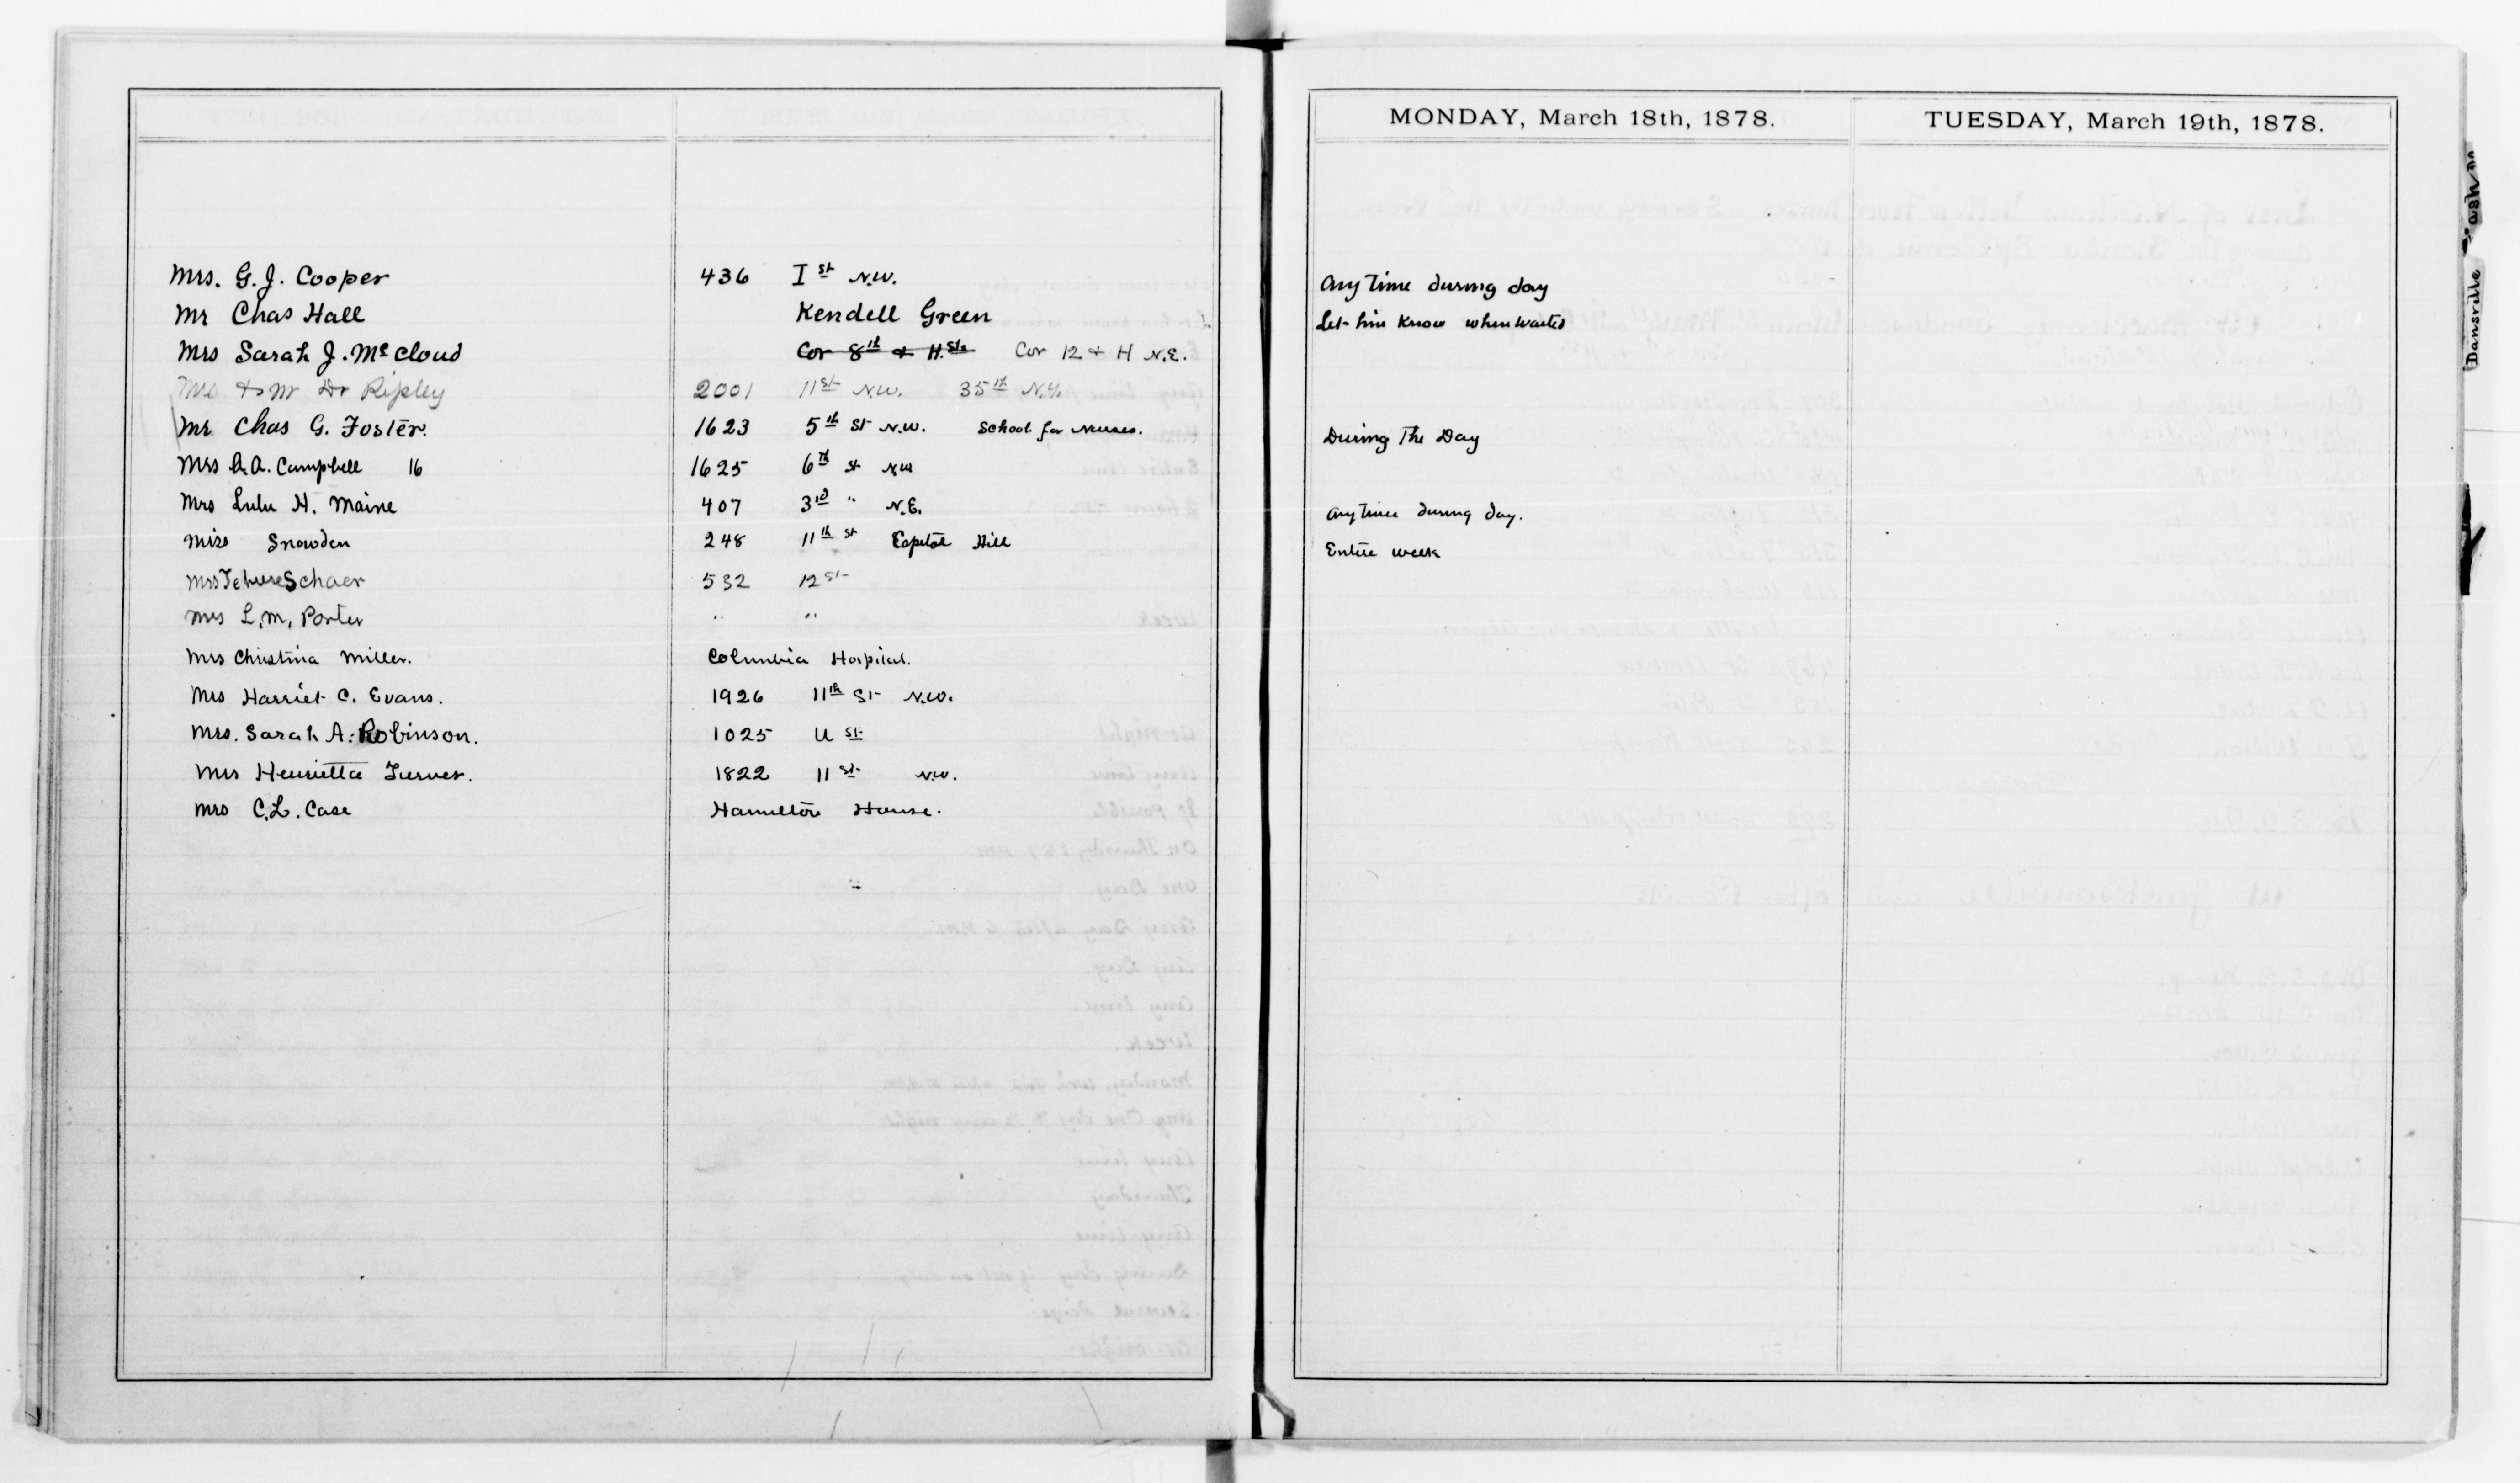 MONDAY, March 18th, 1878. TUESDAY, March 19th, 1878.
Mrs. G. J. Cooper 436 I st N.W. Any Time during day
Mr Chas Hall Kendell Green Let him know when wanted
Mrs Sarah J. McCloud Cor 8th & H. Sts Cor 12 & H N.E.
Mrs & Mr Dr Ripley 2001 11 st N.W. 35th N.Y.
Mr Chas G. Foster. 1623 5th St N.W. School for Nurses. During The Day
Mrs A. A. Campbell 16 1625 6th st N.W
Mrs Lulu H. Maine 407 3rd " N.E. Any time during day.
Miss Snowden 248 11th st Capitol Hill Entire week
Mrs Schaer 532 12 st
Mrs L. M. Porter " "
Mrs Christina Miller. Columbia Hospital.
Mrs Harriet C. Evans. 1926 11th St N.W.
Mrs. Sarah A. Robinson. 1025 U st
Mrs Henrietta Turner. 1822 11 st N.W.
Mrs C. L. Case Hamilton House.
Dansville